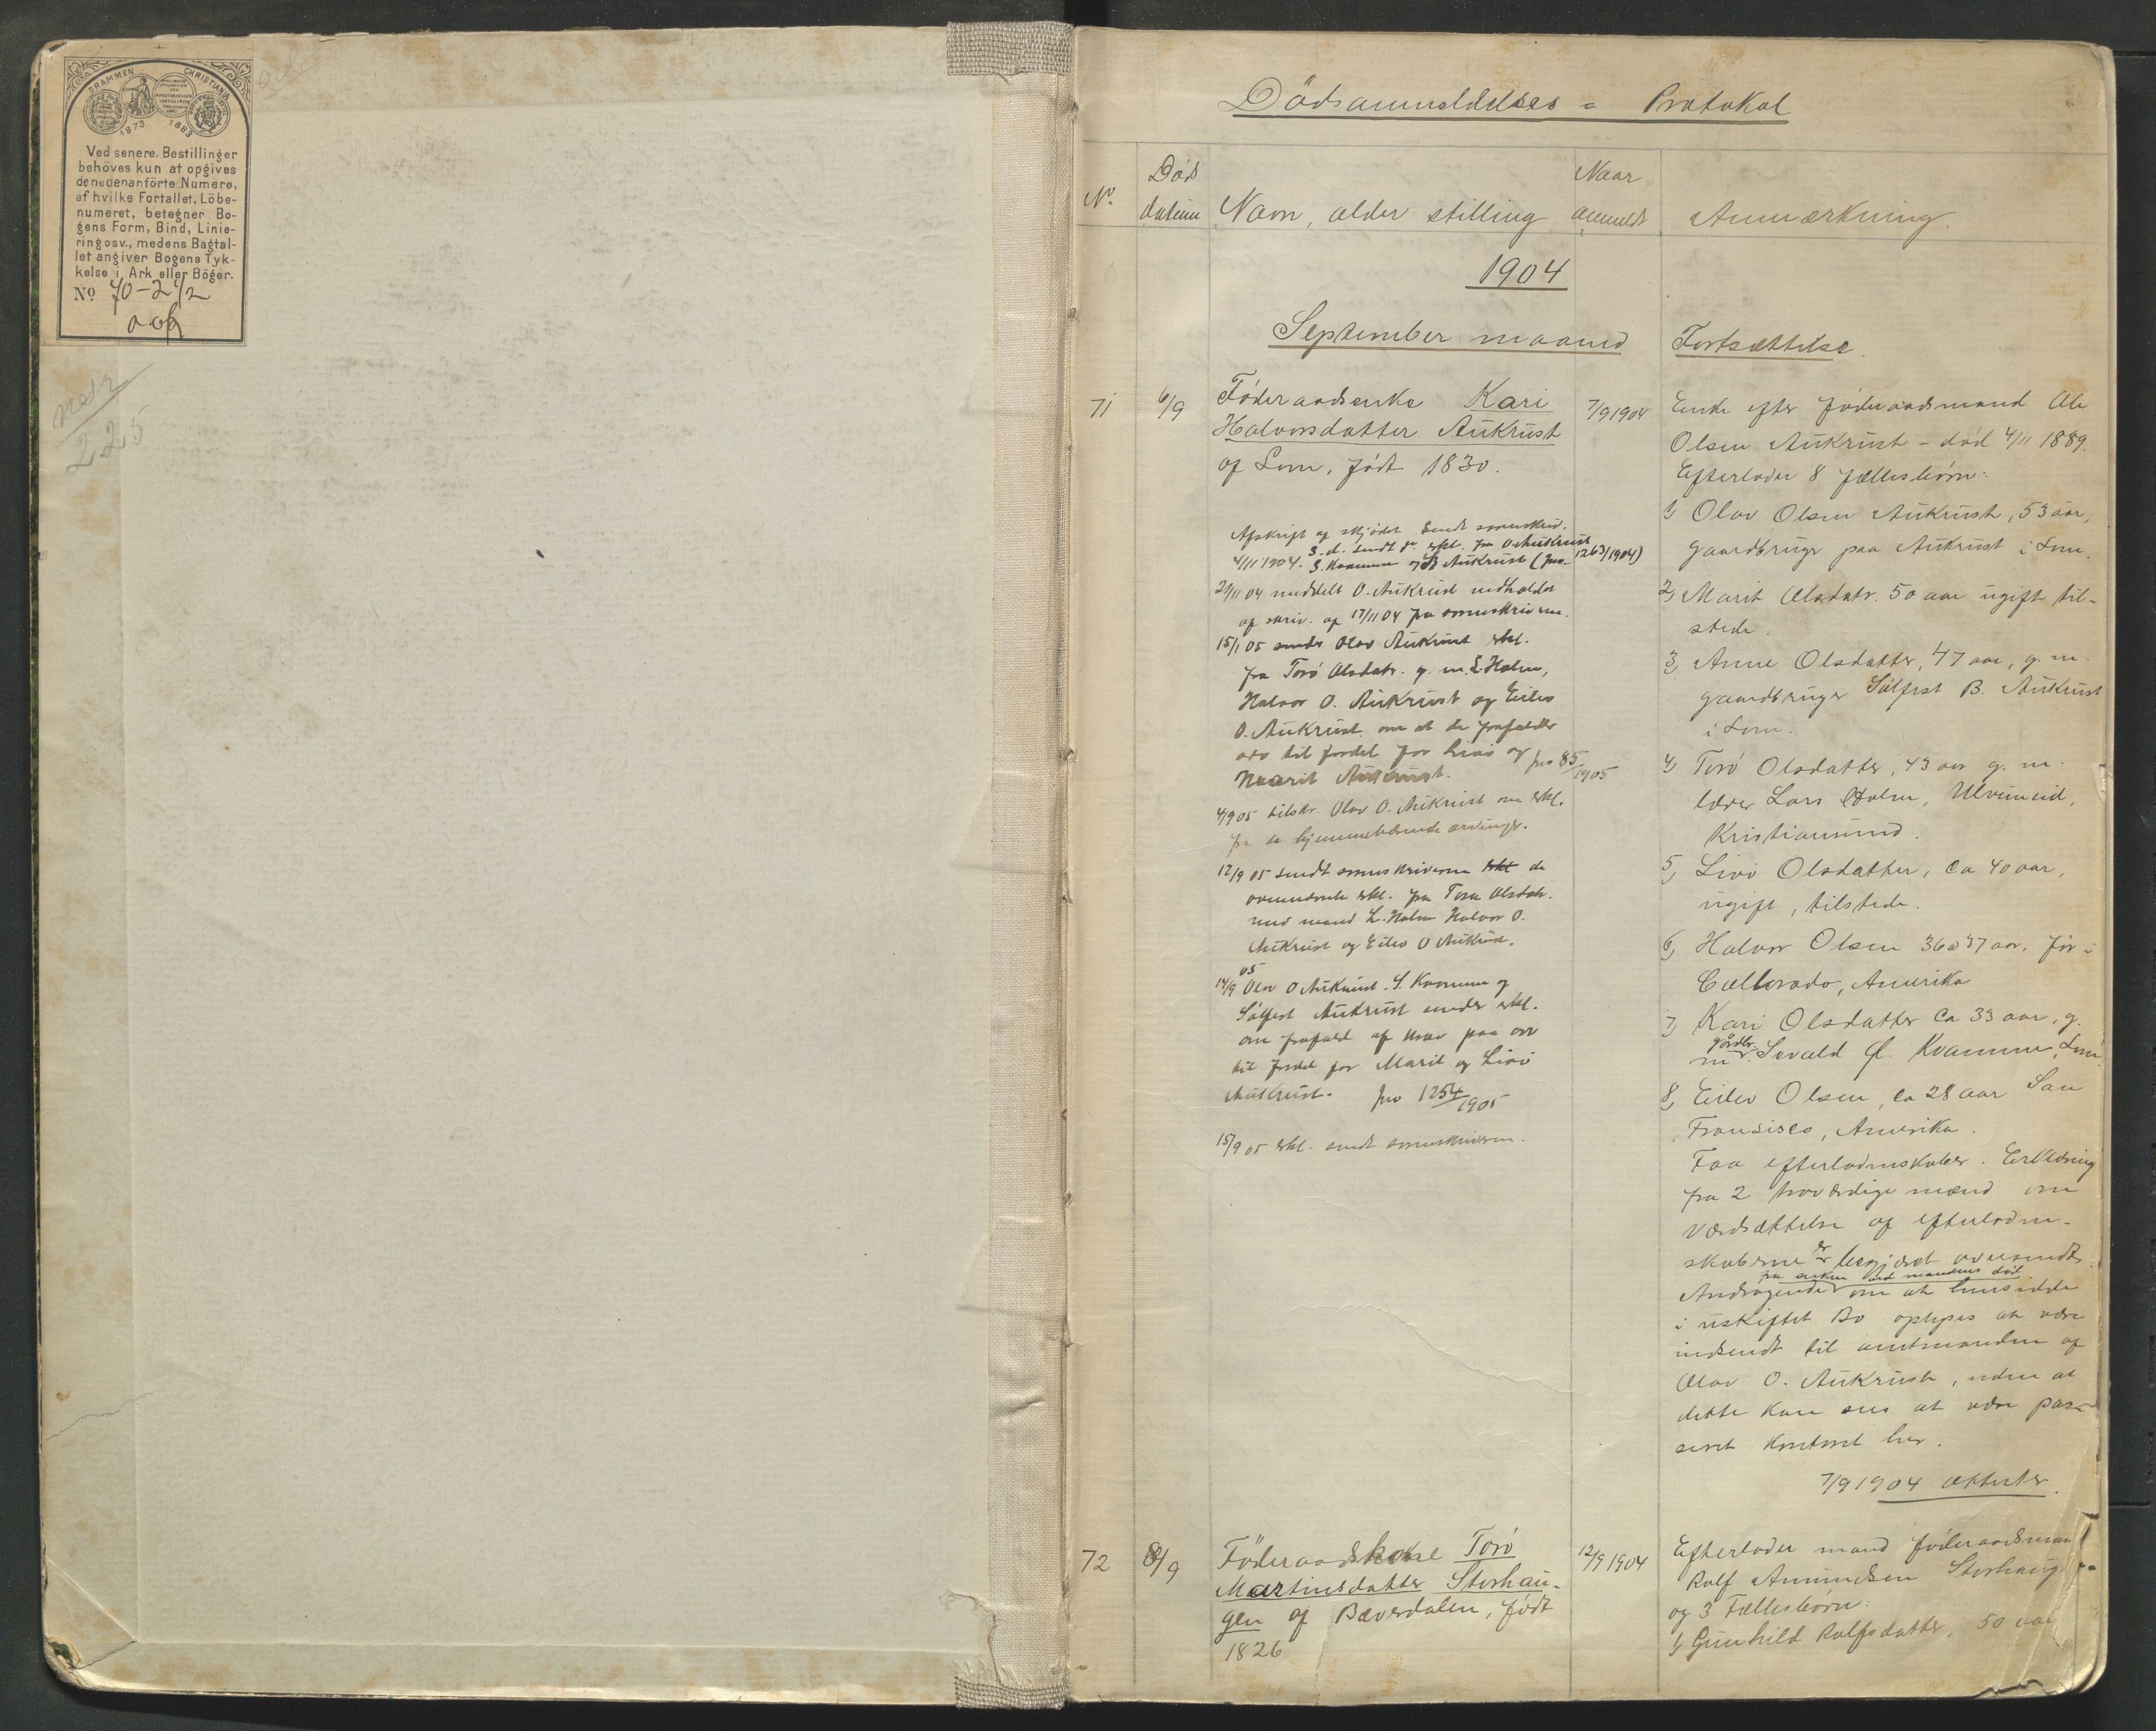 DRAMMEN CHRISTIANIA
1873 1883
Ved senere Bestillinger
behöves kun at opgives
denedenanförte Numere,
af hvilke Fortallet, Löbe-
numeret, betegner Bo-
gens Form, Bind, Linie-
ringosv., medens Bagtal-
let angiver Bogens Tyk-
kelse i Ark eller Böger.
No 70-2 1/2
225
Dödsanmeldelses = Protokol
No.
Död
datum
Navn, alder stilling
Naar
anmeldt
Anmærkning.
1904
September maaned
Fortsættelse.
71
6/9
Föderaadsenke Kari
Halvorsdatter Aukrust
af Lom, født 1830.
7/9 1904
Afskrift af skjödet sendt sorenskriv.
4/11 1904. S. d. sendt do erkl. fra O. Aukrust
S. Kvamme og S. B. Aukrust (Jno. 1263/1904)
21/11 04 meddelt O. Aukrust indholdet
af skriv. af 17/11 04 fra sorenskriveren.
15/1 05 sender Olav Aukrust erkl.
fra Torö Olsdatr. g. m. L. Holm,
Halvor O. Aukrust og Eilev
O. Aukrust om at de frafalder
arv til fordel for Livö og
Maarit Aukrust. Jno 85/1905
4/9 05 tilskr. Olav O. Aukrust om erkl.
fra de hjemmeværende arvinger.
12/9 05 sendt sorenskriveren erkl de
ovennævnte erkl. fra Tora Olsdatr.
med mand L. Holm Halvor O.
Aukrust og Eilev O Aukrust.
14/9 05 Olav O Aukrust. S. Kvamme og
Sölfest Aukrust sender erkl.
om frafald af krav paa arv
til fordel for Marit og Livö
Aukrust. Jno 1254/1905
15/9 05 erkl. sendt sorenskriveren.
Enke efter föderaadsmand Ole
Olsen Aukrust - död 4/11 1889.
Efterlader 8 fællesbörn:
1, Olav Olsen Aukrust, 53 aar,
gaardbruger paa Aukrust i Lom.
2, Marit Olsdatr. 50 aar ugift til-
stede.
3, Anne Olsdatter, 47 aar, g. m.
gaardbruger Sölfest B. Aukrust
i Lom.
4, Torö Olsdatter, 43 aar g. m.
lærer Lars Holm, Ulvimeid,
Kristiansund.
5, Livö Olsdatter, ca 40 aar,
ugift, tilstede.
6, Halvor Olsen 36 a 37 aar, för i
Callorado, Amerika
7, Kari Olsdatter ca 33 aar, g.
m gårdbr. Sevald Kvamme, Lom
8, Eilev Olsen, ca 28 aar San
Fransisco, Amerika.
Faa efterladenskaber. Erklæring
fra 2 troværdige mænd om
værdsættelse af efterladen-
skaberne er begjæret oversendt.
Andragende fra enken ved mandens död om at hensidde
i uskiftet Bo oplyses at være
indsendt til amtmanden af
Olav O. Aukrust, uden at
dette kan sees at være pas-
seret kontoret her.
7/9 1904 attester.
72
8/9
Föderaadskone Torö
Martinsdatter Storhau-
gen af Bæverdalen, født
1826
12/9 1904
Efterlader mand föderaadsmand
Rolf Amundsen Storhaugen
og 3 Fællesbörn:
1, Gunhild Rolfsdatter, 50 aar